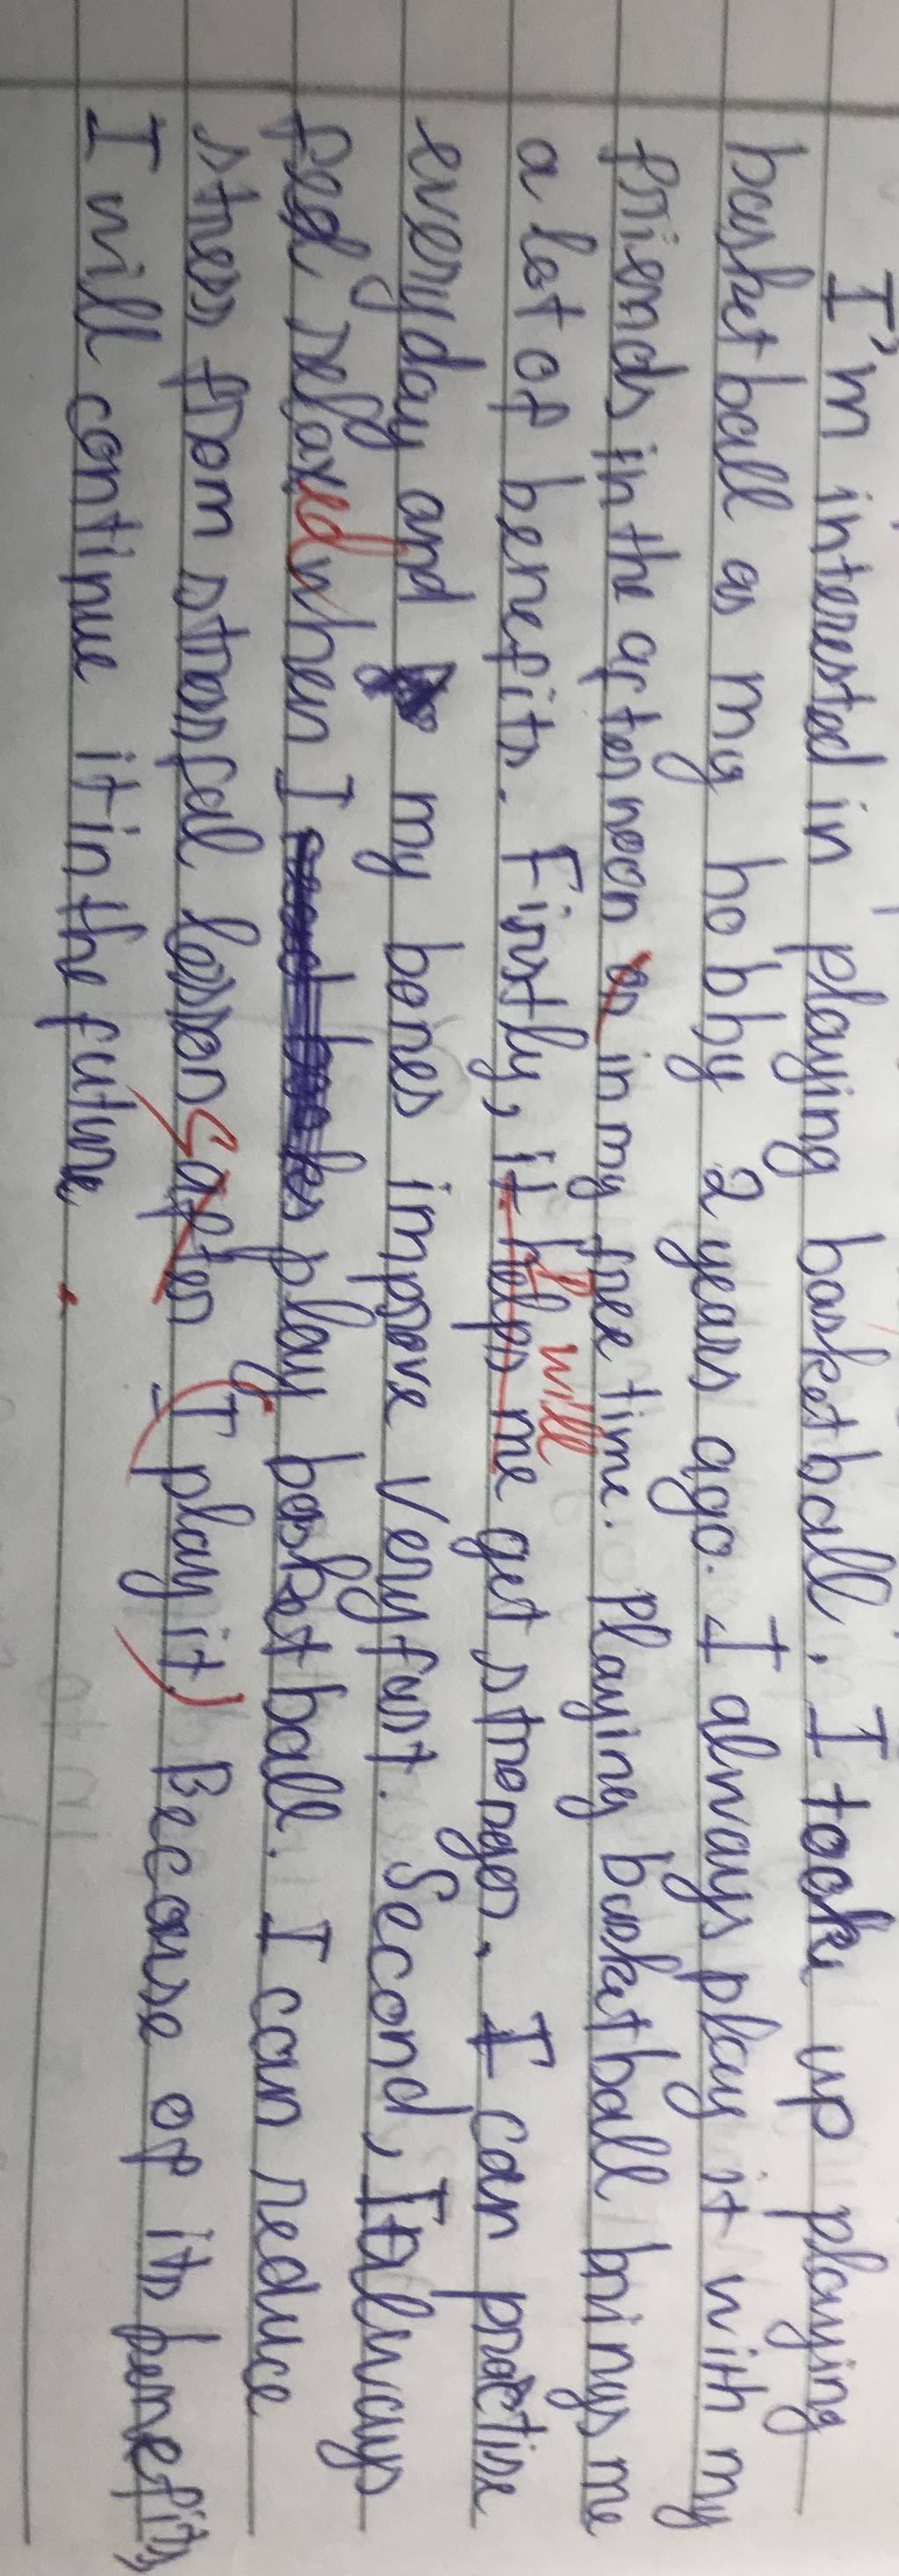 I'm interested in playing basketball. I took up playing
basketball as my hobby 2 years ago. I always play it with my
friends in the afternoon or in my free time. Playing basketball brings me
a lot of benefits. Firstly, it helps me get stronger. I can practise
If will
everyday and my bones improve very fast. Second, I always
feel relaxed when I play basketball. I can reduce
stress from stressful lessons after I play it) Because of its benefits,
I will continue it in the future.